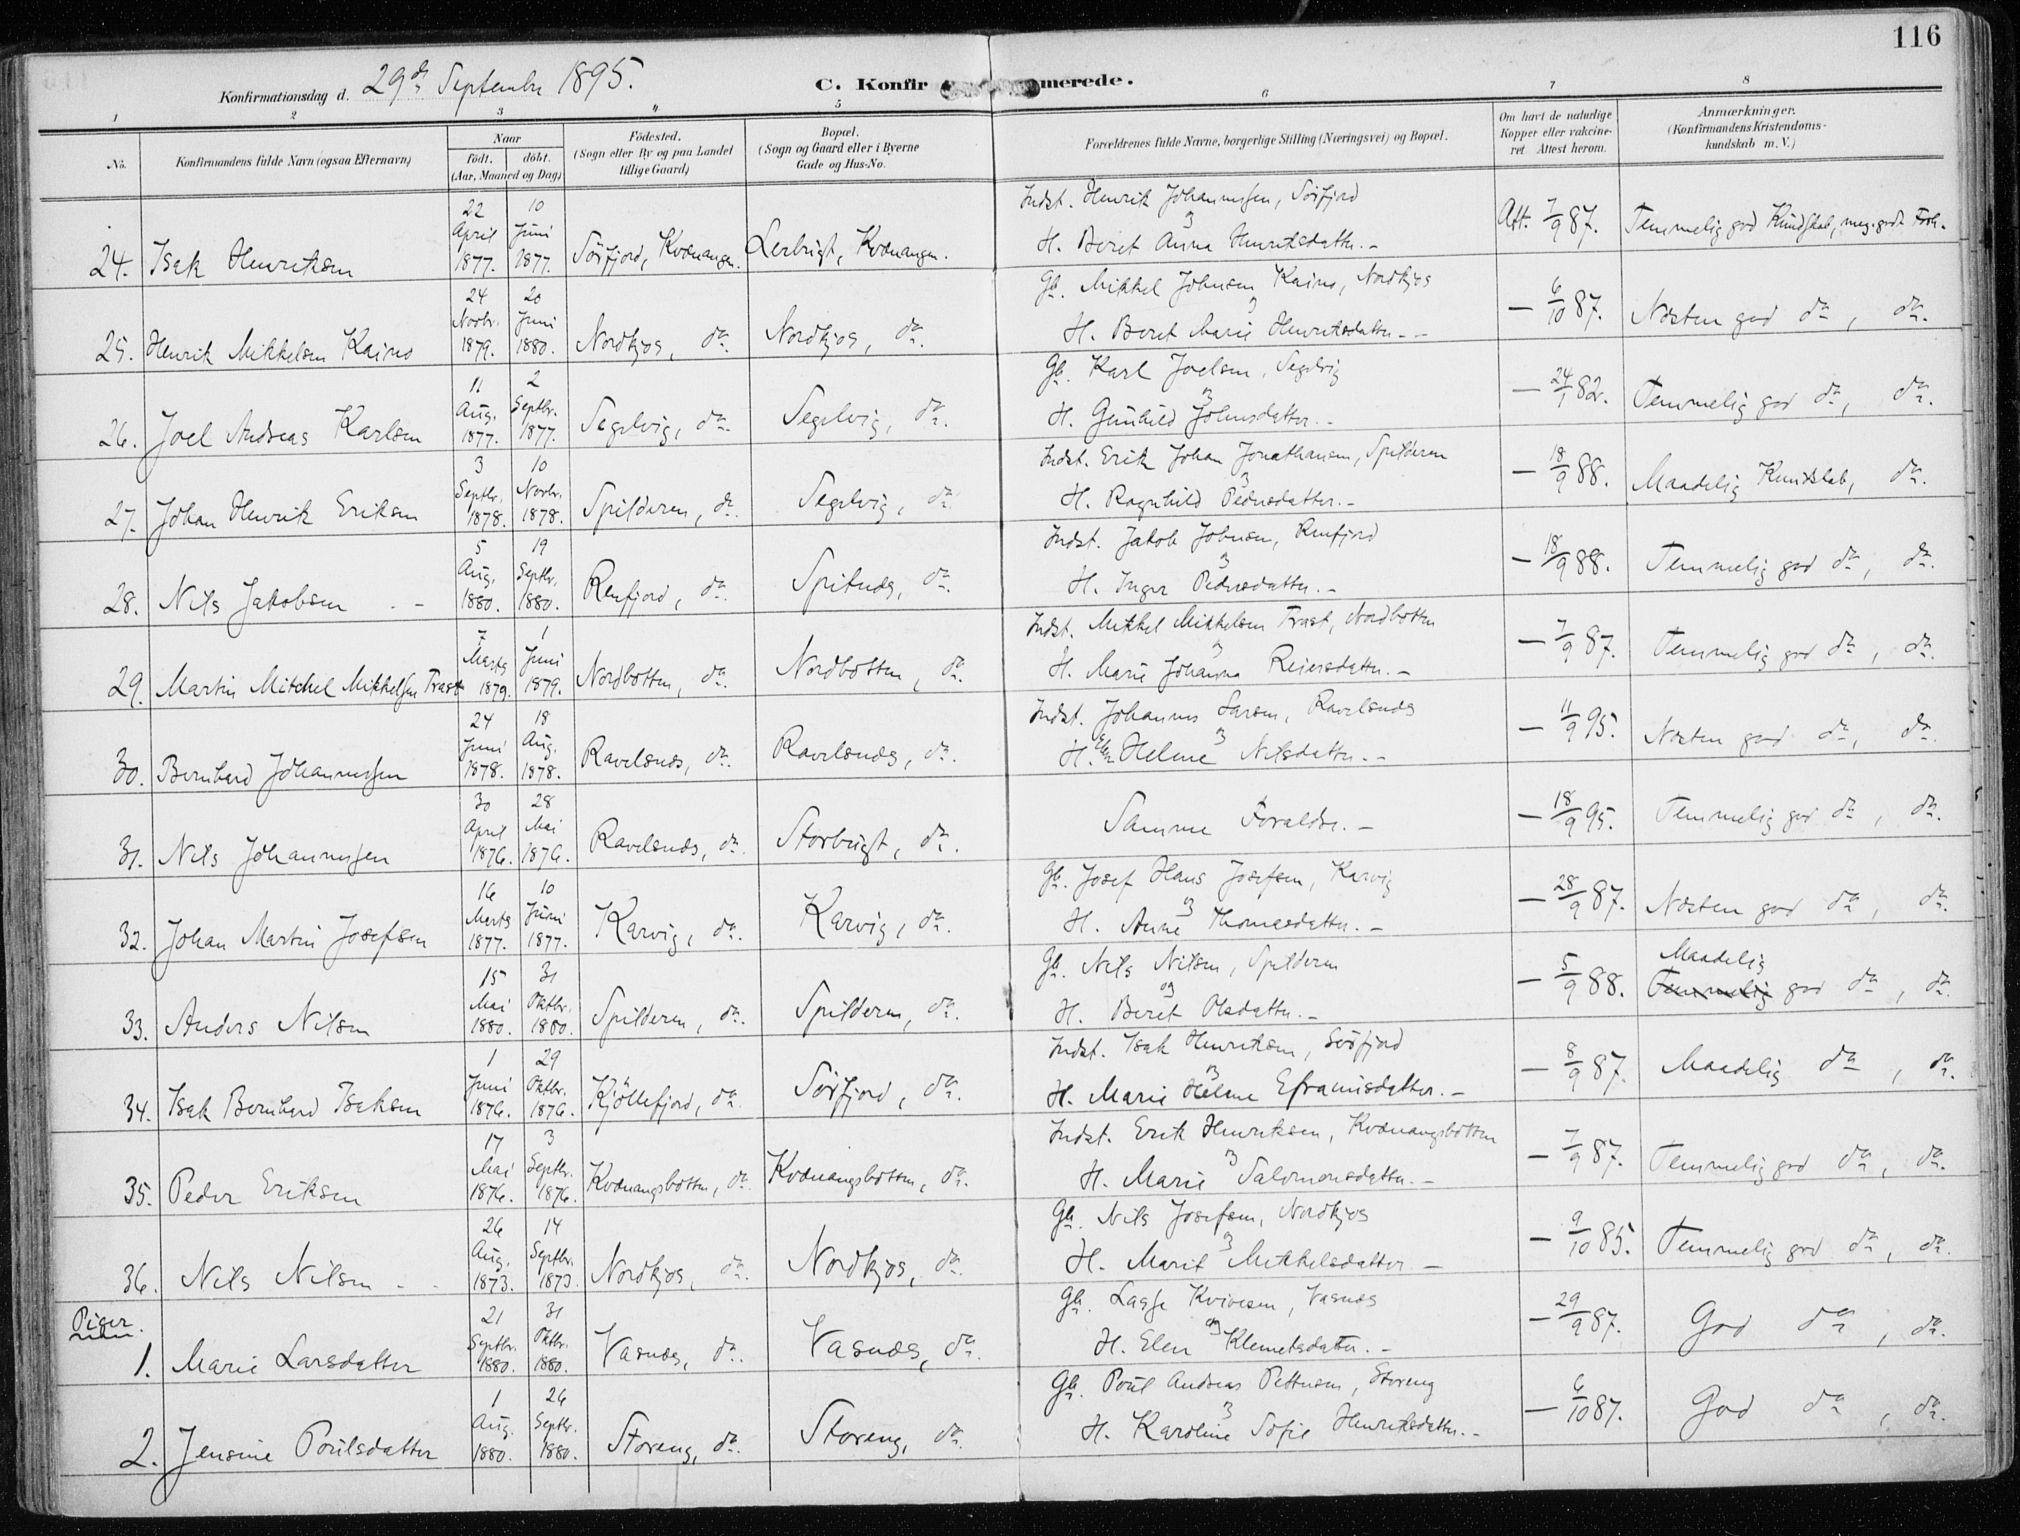 116
Konfirmationsdag d. 29de September 1895.
C. Konfirmerede.
1 2 3 4 5 6 7 8
No.
Konfirmandens fulde Navn (ogsaa Efternavn)
Naar
født. døbt.
(Aar, Maaned og Dag)
Fødested.
(Sogn eller By og paa Landet
tillige Gaard)
Bopæl.
(Sogn og Gaard eller i Byerne
Gade og Hus-No.
Forældrenes fulde Navne, borgerlige Stilling (Næringsvei) og Bopæl.
Om havt de naturlige
Kopper eller vaccine-
ret. Attest herom.
Anmærkninger.
(Konfirmandens Kristendoms-
kundskab m. V.)
24. Isak Henriksen 22 April 1877. 10 Juni 1877. Sørfjord, Kvænangen. Lerbugt, Kvænangen. Indst. Henrik Johannesen, Sørfjord
og
H. Beret Anna Henriksdatter.- Att. 7/9 87. Temmelig god Kundskab, meg. godt Forh.
25. Henrik Mikkelsen Kaino 24 Novbr. 1879. 20 Juni 1880. Nordkjos, do. Nordkjos, do. Gb. Mikkel Johnsen Kaino, Nordkjos
og
H. Beret Marie Henriksdatter.- - 6/10 87. Næsten god do, do.
26. Joel Andreas Karlsen 11 Aug. 1877. 2 Septbr. 1877. Segelvig, do. Segelvig, do. Gb. Karl Joelsen, Segelvig
og
H. Gunhild Johnsdatter.- - 24/1 82. Temmelig god do, do.
27. Johan Henrik Eriksen 3 Septbr. 1878. 10 Novbr. 1878. Spilderen, do. Segelvig, do. Indst. Erik Johan Jonathansen, Spilderen
og
H. Ragnhild Pedersdatter.- - 18/9 88. Maadelig Kundskab, do.
28. Nils Jakobsen 5 Aug. 1880. 19 Septbr. 1880. Renfjord, do. Spitnæs, do. Indst. Jakob Johnsen, Renfjord
og
H. Inger Pedersdatter.- - 18/9 88. Temmelig god do, do.
29. Martin Mitchel Mikkelsen Trast 7 Marts 1879. 1 Juni 1879. Nordbotten, do. Nordbotten, do. Indst. Mikkel Mikkelsen Trast, Nordbotten
og
H. Marie Johanna Reiersdatter.- - 7/9 87. Temmelig god do, do.
30. Bernhard Johannesen 24 Juni 1878. 18 Aug. 1878. Ravelsnæs, do. Ravelsnæs, do. Indst. Johannes Larsen, Ravelsnæs
og
H. Elen Helene Nilsdatter.- - 11/9 95. Næsten god do, do.
31. Nils Johannesen 30 April 1876. 28 Mai 1876. Ravelsnæs, do. Storbugt, do. Samme Forældre.- - 18/9 95. Temmelig god do, do.
32. Johan Martin Josefsen 16 Marts 1877. 10 Juni 1877. Karvig, do. Karvig, do. Gb. Josef Hans Josefsen, Karvig
og
H. Anne Thomasdatter.- - 28/9 87. Næsten god do, do.
33. Anders Nilsen 15 Mai 1880. 31 Oktbr. 1880. Spilderen, do. Spilderen, do. Gb. Nils Nilsen, Spilderen
og
H. Beret Olsdatter.- - 5/9 88. Maadelig
Temmelig god do, do.
34. Isak Bernhard Isaksen 1 Juni 1876. 29 Oktbr. 1876. Kjøllefjord, do. Sørfjord, do. Indst. Isak Henriksen, Sørfjord
og
H. Marie Helene Eframisdatter.- - 8/9 87. Maadelig do, do.
35. Peder Eriksen 17 Mai 1876. 3 Septbr. 1876. Kvænangsbotten, do. Kvænangsbotten, do. Indst. Erik Henriksen, Kvænangsbotten
og
H. Marie Salomonsdatter.- - 7/9 87. Temmelig god do, do.
36. Nils Nilsen 26 Aug. 1873. 14 Septbr. 1873. Nordkjos, do. Nordkjos, do. Gb. Nils Josefsen, Nordkjos
og
H. Marit Mikkelsdatter - - 9/10 85. Temmelig god do, do.
Piger.
1. Marie Larsdatter 21 Septbr. 1880. 31 Oktbr. 1880. Vasnæs, do. Vasnæs, do. Gb. Lasse Kvivesen, Vasnæs
og
H. Elen Klemetsdatter.- - 29/9 87. God do, do.
2. Jensine Poulsdatter 1 Aug. 1880. 26 Septbr. 1880. Storeng, do. Storeng, do. Gb. Poul Andreas Pettersen, Storeng
og
H. Karoline Sofie Henriksdatter.- - 6/10 87. God do, do.